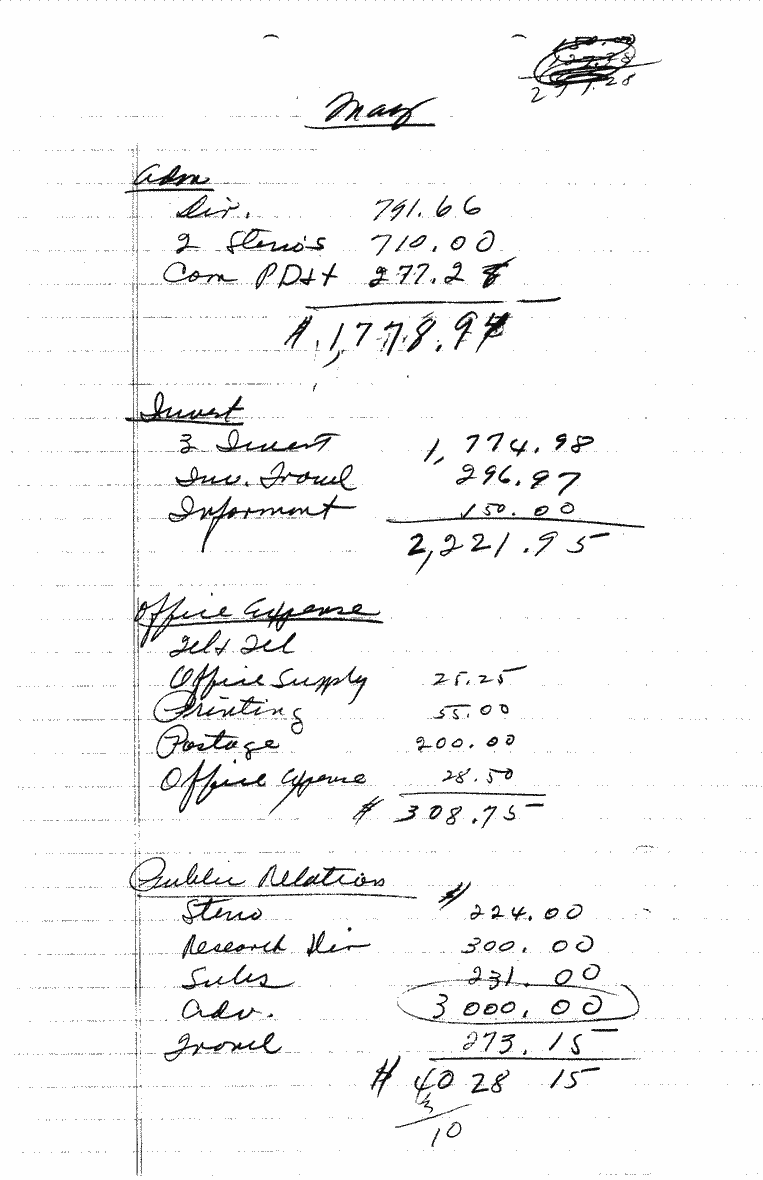 277.28
May
Adm
Dir. 791.66
2 Steno's 710.00
Com PD++ 277.28
$ 1,778.94
Invest
3 Invest 1,774.98
Inv. Travel 296.97
Informant 150.00
2,221.95
Office Expense
Tel & Tel
Office Supply 25.25
Printing 55.00
Postage 200.00
Office Expense 28.50
$ 308.75
Public Relation $
Steno 224.00
Research Dir 300.00
Subs 231.00
Adv. 3 000.00
Travel 273.15
$ 4028 15
3
10